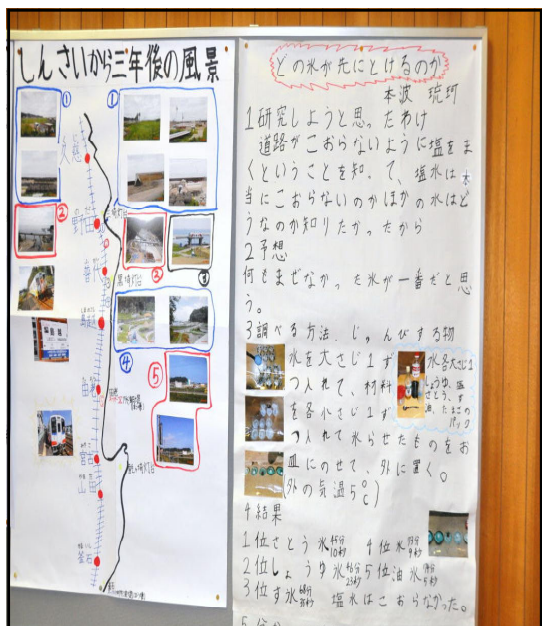 しんさいから三年後の風景
①
①
久慈
②
野田
②
③
普代
黒埼灯台
島越
④
⑤
宮古
山田
釜石
どの氷が先にとけるのか
本波 琉珂
1研究しようと思ったわけ
道路がこおらないように塩をま
くということを知って、塩水は本
当にこおらないのかほかの氷はど
うなのか知りたかったから
2予想
何もまぜなかった氷が一番だと思
う。
3調べる方法、じゅんびする物
水を大さじ1ず
つ入れて、材料
を各小さじ1ず
つ入れて氷らせたものをお
皿にのせて、外に置く。
(外の気温5℃)
水各大さじ1
しょうゆ、塩
さとう、す
油、たまごの
パック
4結果
1位さとう氷45分10秒 4位氷
2位しょうゆ氷46分23秒 5位油氷
3位す氷 塩水はこおらなかった。